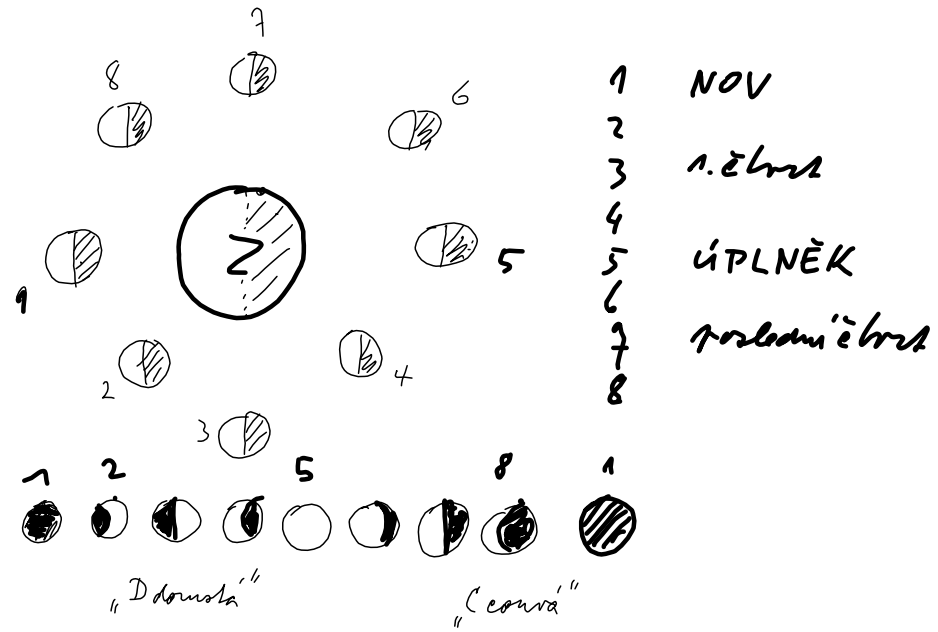 7
8
6
Z
1
5
2
4
3
1 NOV
2
3 1. čtvrt
4
5 ÚPLNĚK
6
7 poslední čtvrt
8
1 2 5 8 1
„D dorůstá" „C couvá"